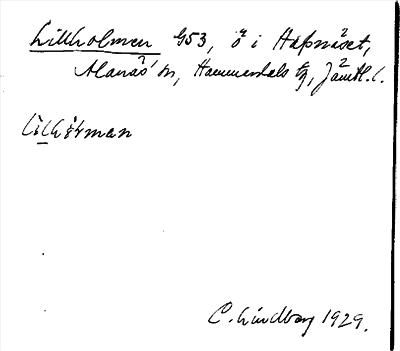 Lillholmen 953, ö i Hafsnäset,
Alanäs sn, Hammerdals tg, Jämtl. l.
C. Lindberg 1929.